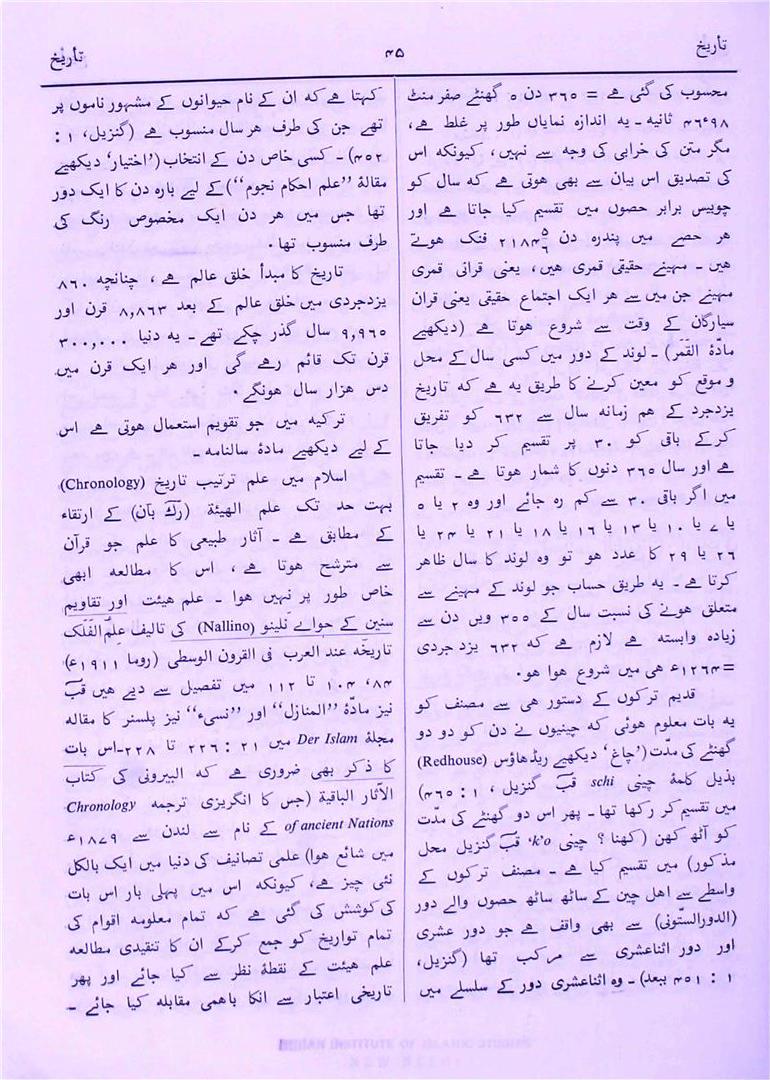 تأریخ
۴۵
تأریخ
محسوب کی گئی ہے = ۳۶۵ دن ۵ گھنٹے صفر منٹ
۴۶٫۹۸ ثانیہ ۔ یہ اندازہ نمایاں طور پر غلط ہے،
مگر متن کی خرابی کی وجہ سے نہیں، کیونکہ اس
کی تصدیق اس بیان سے بھی ہوتی ہے کہ سال کو
چوبیس برابر حصوں میں تقسیم کیا جاتا ہے اور
ہر حصے میں پندرہ دن ۲۱۸۴ ۵/۶ فنک ہوتے
ہیں ۔ مہینے حقیقی قمری ہیں، یعنی قرانی قمری
مہینے جن میں سے ہر ایک اجتماع حقیقی یعنی قران
سیارگان کے وقت سے شروع ہوتا ہے (دیکھیے
مادّۂ القَمَر) ۔ لوند کے دور میں کسی سال کے محل
و موقع کو معین کرنے کا طریق یہ ہے کہ تاریخ
یزدجرد کے ہم زمانہ سال سے ۶۳۲ کو تفریق
کرکے باقی کو ۳۰ پر تقسیم کر دیا جاتا
ہے اور سال ۳۶۵ دنوں کا شمار ہوتا ہے ۔ تقسیم
میں اگر باقی ۳۰ سے کم رہ جائے اور وہ ۲ یا ۵
یا ۷ یا ۱۰ یا ۱۳ یا ۱۶ یا ۱۸ یا ۲۱ یا ۲۴ یا
۲۶ یا ۲۹ کا عدد ہو تو وہ لوند کا سال ظاہر
کرتا ہے ۔ یہ طریق حساب جو لوند کے مہینے سے
متعلق ہونے کی نسبت سال کے ۳۵۵ ویں دن سے
زیادہ وابستہ ہے لازم ہے کہ ۶۳۲ یزد جردی
=۱۲۶۴ء ہی میں شروع ہوا ہو۔
قدیم ترکوں کے دستور ہی سے مصنف کو
یہ بات معلوم ہوئی کہ چینیوں نے دن کو دو دو
گھنٹے کی مدّت (’چاغ‘ دیکھیے ریڈہاؤس (Redhouse)
بذیل کلمۂ چینی schi قبؔ گنزیل ، ۱ : ۴۶۵)
میں تقسیم کر رکھا تھا ۔ پھر اس دو گھنٹے کی مدّت
کو آٹھ کھن (کھنا ؟ چینی k'o‘ قبؔ گنزیل محل
مذکور) میں تقسیم کیا ہے ۔ مصنف ترکوں کے
واسطے سے اہل چین کے ساٹھ ساٹھ حصوں والے دور
(الدورالستّونی) سے بھی واقف ہے جو دور عشری
اور دور اثناعشری سے مرکب تھا (گنزیل،
۱ : ۴۵۱ ببعد) ۔ وہ اثناعشری دور کے سلسلے میں
کہتا ہے کہ ان کے نام حیوانوں کے مشہور ناموں پر
تھے جن کی طرف ہر سال منسوب ہے (گنزیل، ۱ :
۴۵۲) ۔ کسی خاص دن کے انتخاب (’اختیار‘ دیکھیے
مقالۂ ’’علم احکام نجوم‘‘) کے لیے بارہ دن کا ایک دور
تھا جس میں ہر دن ایک مخصوص رنگ کی
طرف منسوب تھا ۔
تاریخ کا مبدأ خلق عالم ہے ، چنانچہ ۸۶۰
یزدجردی میں خلق عالم کے بعد ۸,۸۶۳ قرن اور
۹,۹۶۵ سال گذر چکے تھے ۔ یہ دنیا ۳۰۰,۰۰۰
قرن تک قائم رہے گی اور ہر ایک قرن میں
دس ہزار سال ہونگے ۔
ترکیہ میں جو تقویم استعمال ہوتی ہے اس
کے لیے دیکھیے مادۂ سالنامہ ۔
اسلام میں علم ترتیب تاریخ (Chronology)
بہت حد تک علم الہیئة (رکؔ بآن) کے ارتقاء
کے مطابق ہے ۔ آثار طبیعی کا علم جو قرآن
سے مترشح ہوتا ہے ، اس کا مطالعہ ابھی
خاص طور پر نہیں ہوا ۔ علم ہیئت اور تقاویم
سنین کے حوالے نلینو (Nallino) کی تالیف علم الفَلَک
تاریخہ عند العرب فی القرون الوسطی (روما ۱۹۱۱ء)
۸۴، ۱۰۴ تا ۱۱۲ میں تفصیل سے دیے ہیں قبؔ
نیز مادّۂ ’’المنازل‘‘ اور ’’نسیء‘‘ نیز پلسنر کا مقالہ
مجلۂ Der Islam میں ۲۱ : ۲۲۶ تا ۲۲۸۔اس بات
کا ذکر بھی ضروری ہے کہ البیرونی کی کتاب
الآثار الباقیة (جس کا انگریزی ترجمہ Chronology
of ancient Nations کے نام سے لندن سے ۱۸۷۹ء
میں شائع ہوا) علمی تصانیف کی دنیا میں ایک بالکل
نئی چیز ہے، کیونکہ اس میں پہلی بار اس بات
کی کوشش کی گئی ہے کہ تمام معلومہ اقوام کی
تمام تواریخ کو جمع کرکے ان کا تنقیدی مطالعہ
علم ہیئت کے نقطۂ نظر سے کیا جائے اور پھر
تاریخی اعتبار سے انکا باہمی مقابلہ کیا جائے ۔
INDIAN INSTITUTE OF ISLAMIC STUDIES
NEW DELHI